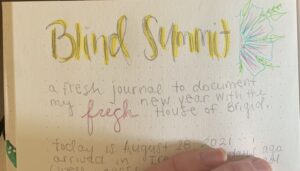 Blind Summit
a fresh journal to document
my fresh new year with the
House of Brigid.
today is August 28 2021. I
arrived in ago